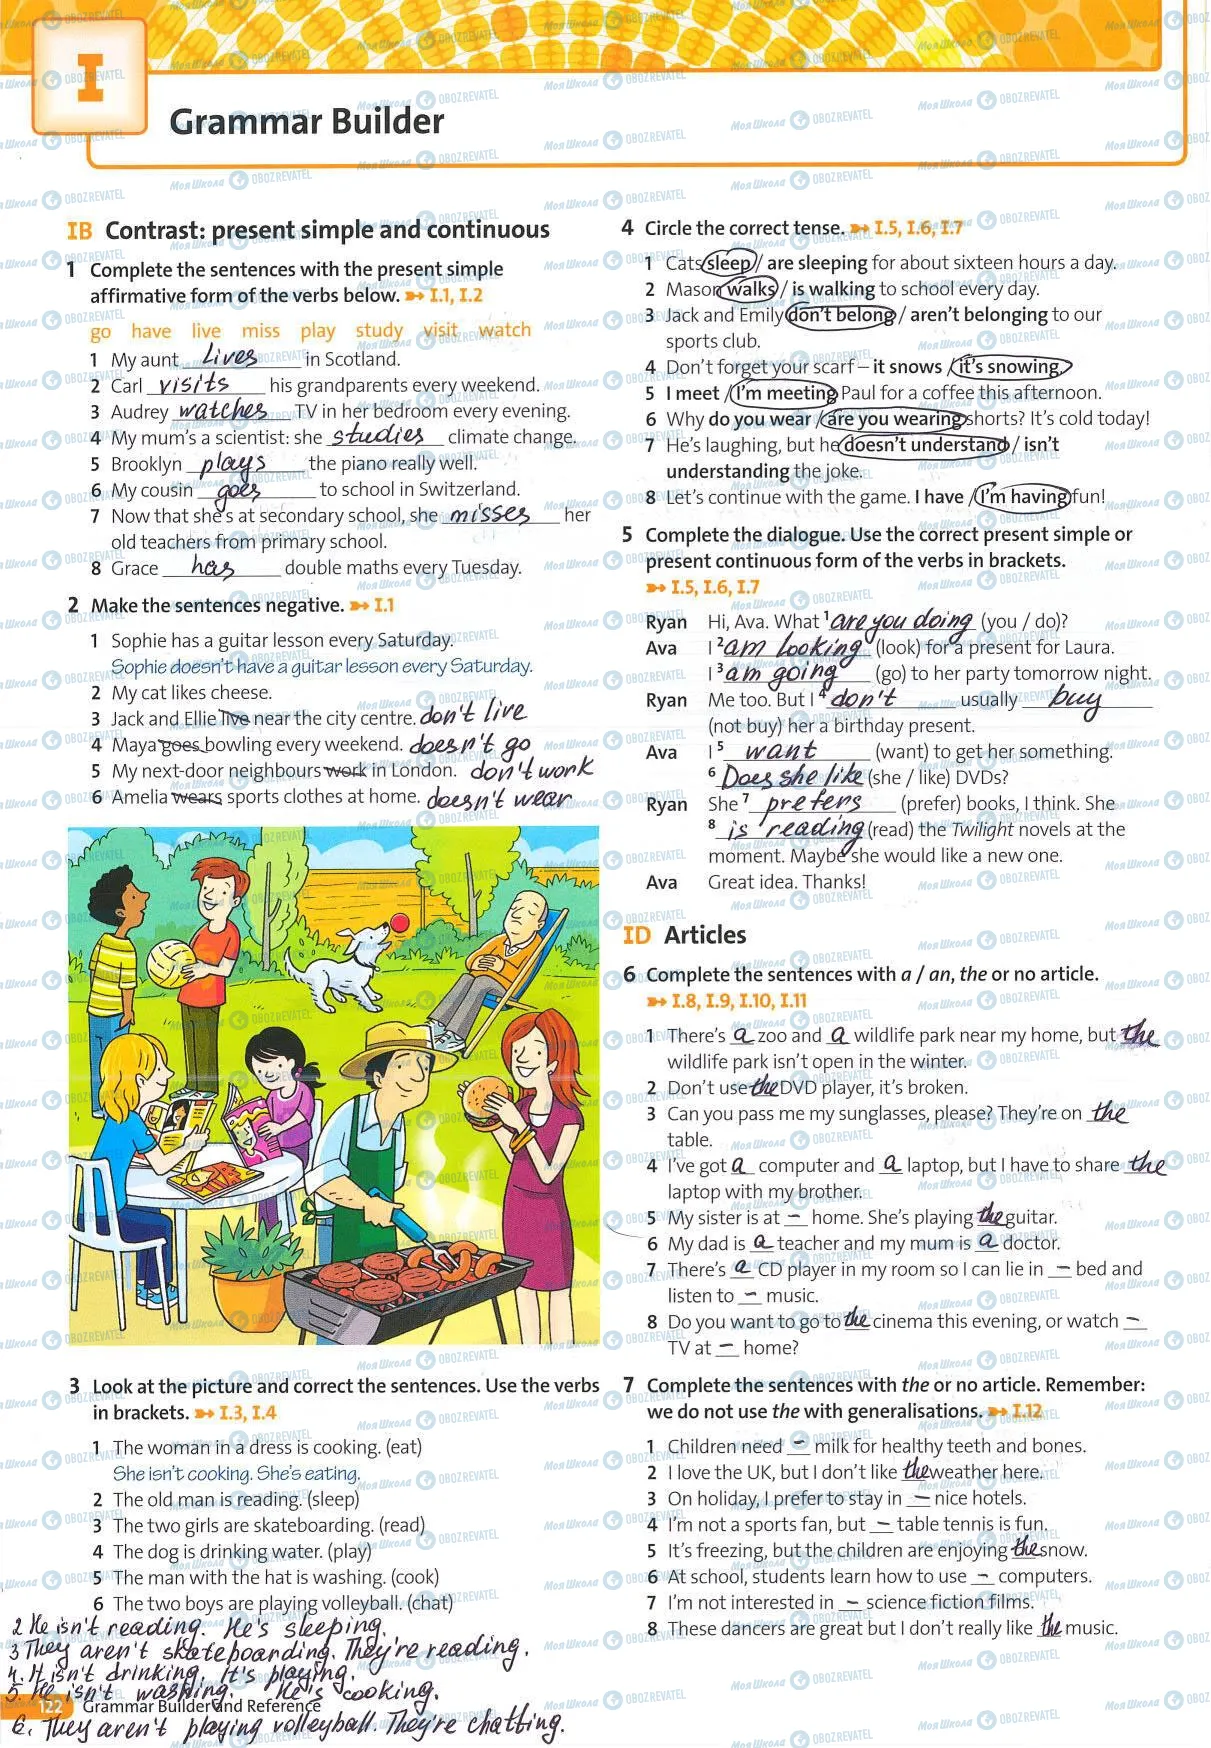 I
Grammar Builder
IB Contrast: present simple and continuous
1 Complete the sentences with the present simple
affirmative form of the verbs below. ➻ I.1, I.2
go have live miss play study visit watch
1 My aunt lives in Scotland.
2 Carl visits his grandparents every weekend.
3 Audrey watches TV in her bedroom every evening.
4 My mum's a scientist: she studies climate change.
5 Brooklyn plays the piano really well.
6 My cousin goes to school in Switzerland.
7 Now that she's at secondary school, she misses her
old teachers from primary school.
8 Grace has double maths every Tuesday.
2 Make the sentences negative. ➻ I.1
1 Sophie has a guitar lesson every Saturday.
Sophie doesn't have a guitar lesson every Saturday.
2 My cat likes cheese.
3 Jack and Ellie live near the city centre. don't live
4 Maya goes bowling every weekend. doesn't go
5 My next-door neighbours work in London. don't work
6 Amelia wears sports clothes at home. doesn't wear
3 Look at the picture and correct the sentences. Use the verbs
in brackets. ➻ I.3, I.4
1 The woman in a dress is cooking. (eat)
She isn't cooking. She's eating.
2 The old man is reading. (sleep)
3 The two girls are skateboarding. (read)
4 The dog is drinking water. (play)
5 The man with the hat is washing. (cook)
6 The two boys are playing volleyball. (chat)
2 He isn't reading. He's sleeping.
3 They aren't skateboarding. They're reading.
4. It isn't drinking. It's playing.
5. He isn't washing. He's cooking.
122 Grammar Builder and Reference
6. They aren't playing volleyball. They're chatting.
4 Circle the correct tense. ➻ I.5, I.6, I.7
1 Cats sleep / are sleeping for about sixteen hours a day.
2 Mason walks / is walking to school every day.
3 Jack and Emily don't belong / aren't belonging to our
sports club.
4 Don't forget your scarf – it snows / it's snowing.
5 I meet / I'm meeting Paul for a coffee this afternoon.
6 Why do you wear / are you wearing shorts? It's cold today!
7 He's laughing, but he doesn't understand / isn't
understanding the joke.
8 Let's continue with the game. I have / I'm having fun!
5 Complete the dialogue. Use the correct present simple or
present continuous form of the verbs in brackets.
➻ I.5, I.6, I.7
Ryan Hi, Ava. What 1 are you doing (you / do)?
Ava I 2 am looking (look) for a present for Laura.
I 3 am going (go) to her party tomorrow night.
Ryan Me too. But I 4 don't usually buy
(not buy) her a birthday present.
Ava I 5 want (want) to get her something.
6 Does she like (she / like) DVDs?
Ryan She 7 prefers (prefer) books, I think. She
8 is reading (read) the Twilight novels at the
moment. Maybe she would like a new one.
Ava Great idea. Thanks!
ID Articles
6 Complete the sentences with a / an, the or no article.
➻ I.8, I.9, I.10, I.11
1 There's a zoo and a wildlife park near my home, but the
wildlife park isn't open in the winter.
2 Don't use the DVD player, it's broken.
3 Can you pass me my sunglasses, please? They're on the
table.
4 I've got a computer and a laptop, but I have to share the
laptop with my brother.
5 My sister is at – home. She's playing the guitar.
6 My dad is a teacher and my mum is a doctor.
7 There's a CD player in my room so I can lie in – bed and
listen to – music.
8 Do you want to go to the cinema this evening, or watch –
TV at – home?
7 Complete the sentences with the or no article. Remember:
we do not use the with generalisations. ➻ I.12
1 Children need – milk for healthy teeth and bones.
2 I love the UK, but I don't like the weather here.
3 On holiday, I prefer to stay in – nice hotels.
4 I'm not a sports fan, but – table tennis is fun.
5 It's freezing, but the children are enjoying the snow.
6 At school, students learn how to use – computers.
7 I'm not interested in – science fiction films.
8 These dancers are great but I don't really like the music.
Моя Школа OBOZREVATEL